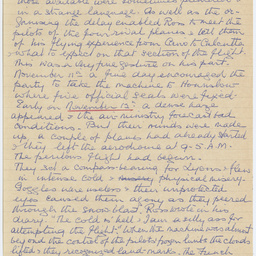 those available were sometimes printed
in a strange language. As well as the or-
January the delay enabled Ross to meet the
pilots of the four rival planes & tell them
of his flying experience from Cairo to Calcutta
what to expect on that section of the flight
This was a very fine gesture on his part.
November 11th a fine day encouraged the
party to take the machine to Hounslow
where five official seals were fixed.
Early on November 12th a dense haze
appeared & the air ministry forecast bad
conditions. But their minds were made
up, a couple of planes had already started
& they left the aerodrome at 9.5 A.M.
The perilous flight had begun.
They set a compass bearing for Lyons & flew
in intense cold physical misery.
Goggles were useless & their unprotected
eyes caused them agony as they peered
through the snow blast. Ross wrote in his
diary. "The cold is hell. I am a silly ass for
attempting the flight". When the machine was almost
beyond the control of the pilots frozen limbs the clouds
lifted & they recognized landmarks. The French